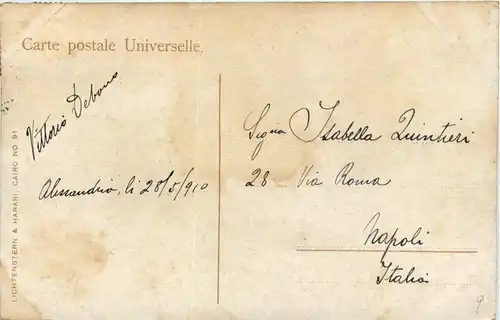 Carte postale Universelle.
Vittorio Debono
Alessandria, li 28/5/910
LICHTENSTERN & HARARI, CAIRO NO 91
Signa Isabella Quintieri
28 Via Roma
Napoli
Italia
9